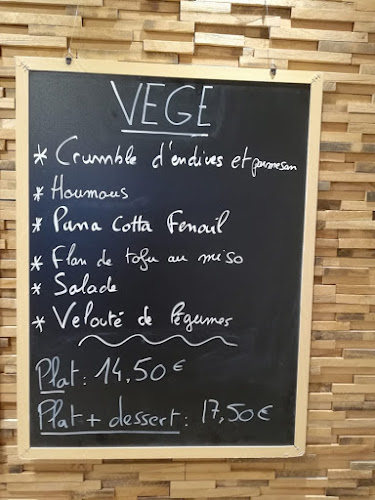 VEGE
* Crumble d'endives et parmesan
* Houmous
* Pana Cotta Fenouil
* Flan de tofu au miso
* Salade
* Velouté de légumes
Plat : 14,50 €
Plat + dessert : 17,50 €